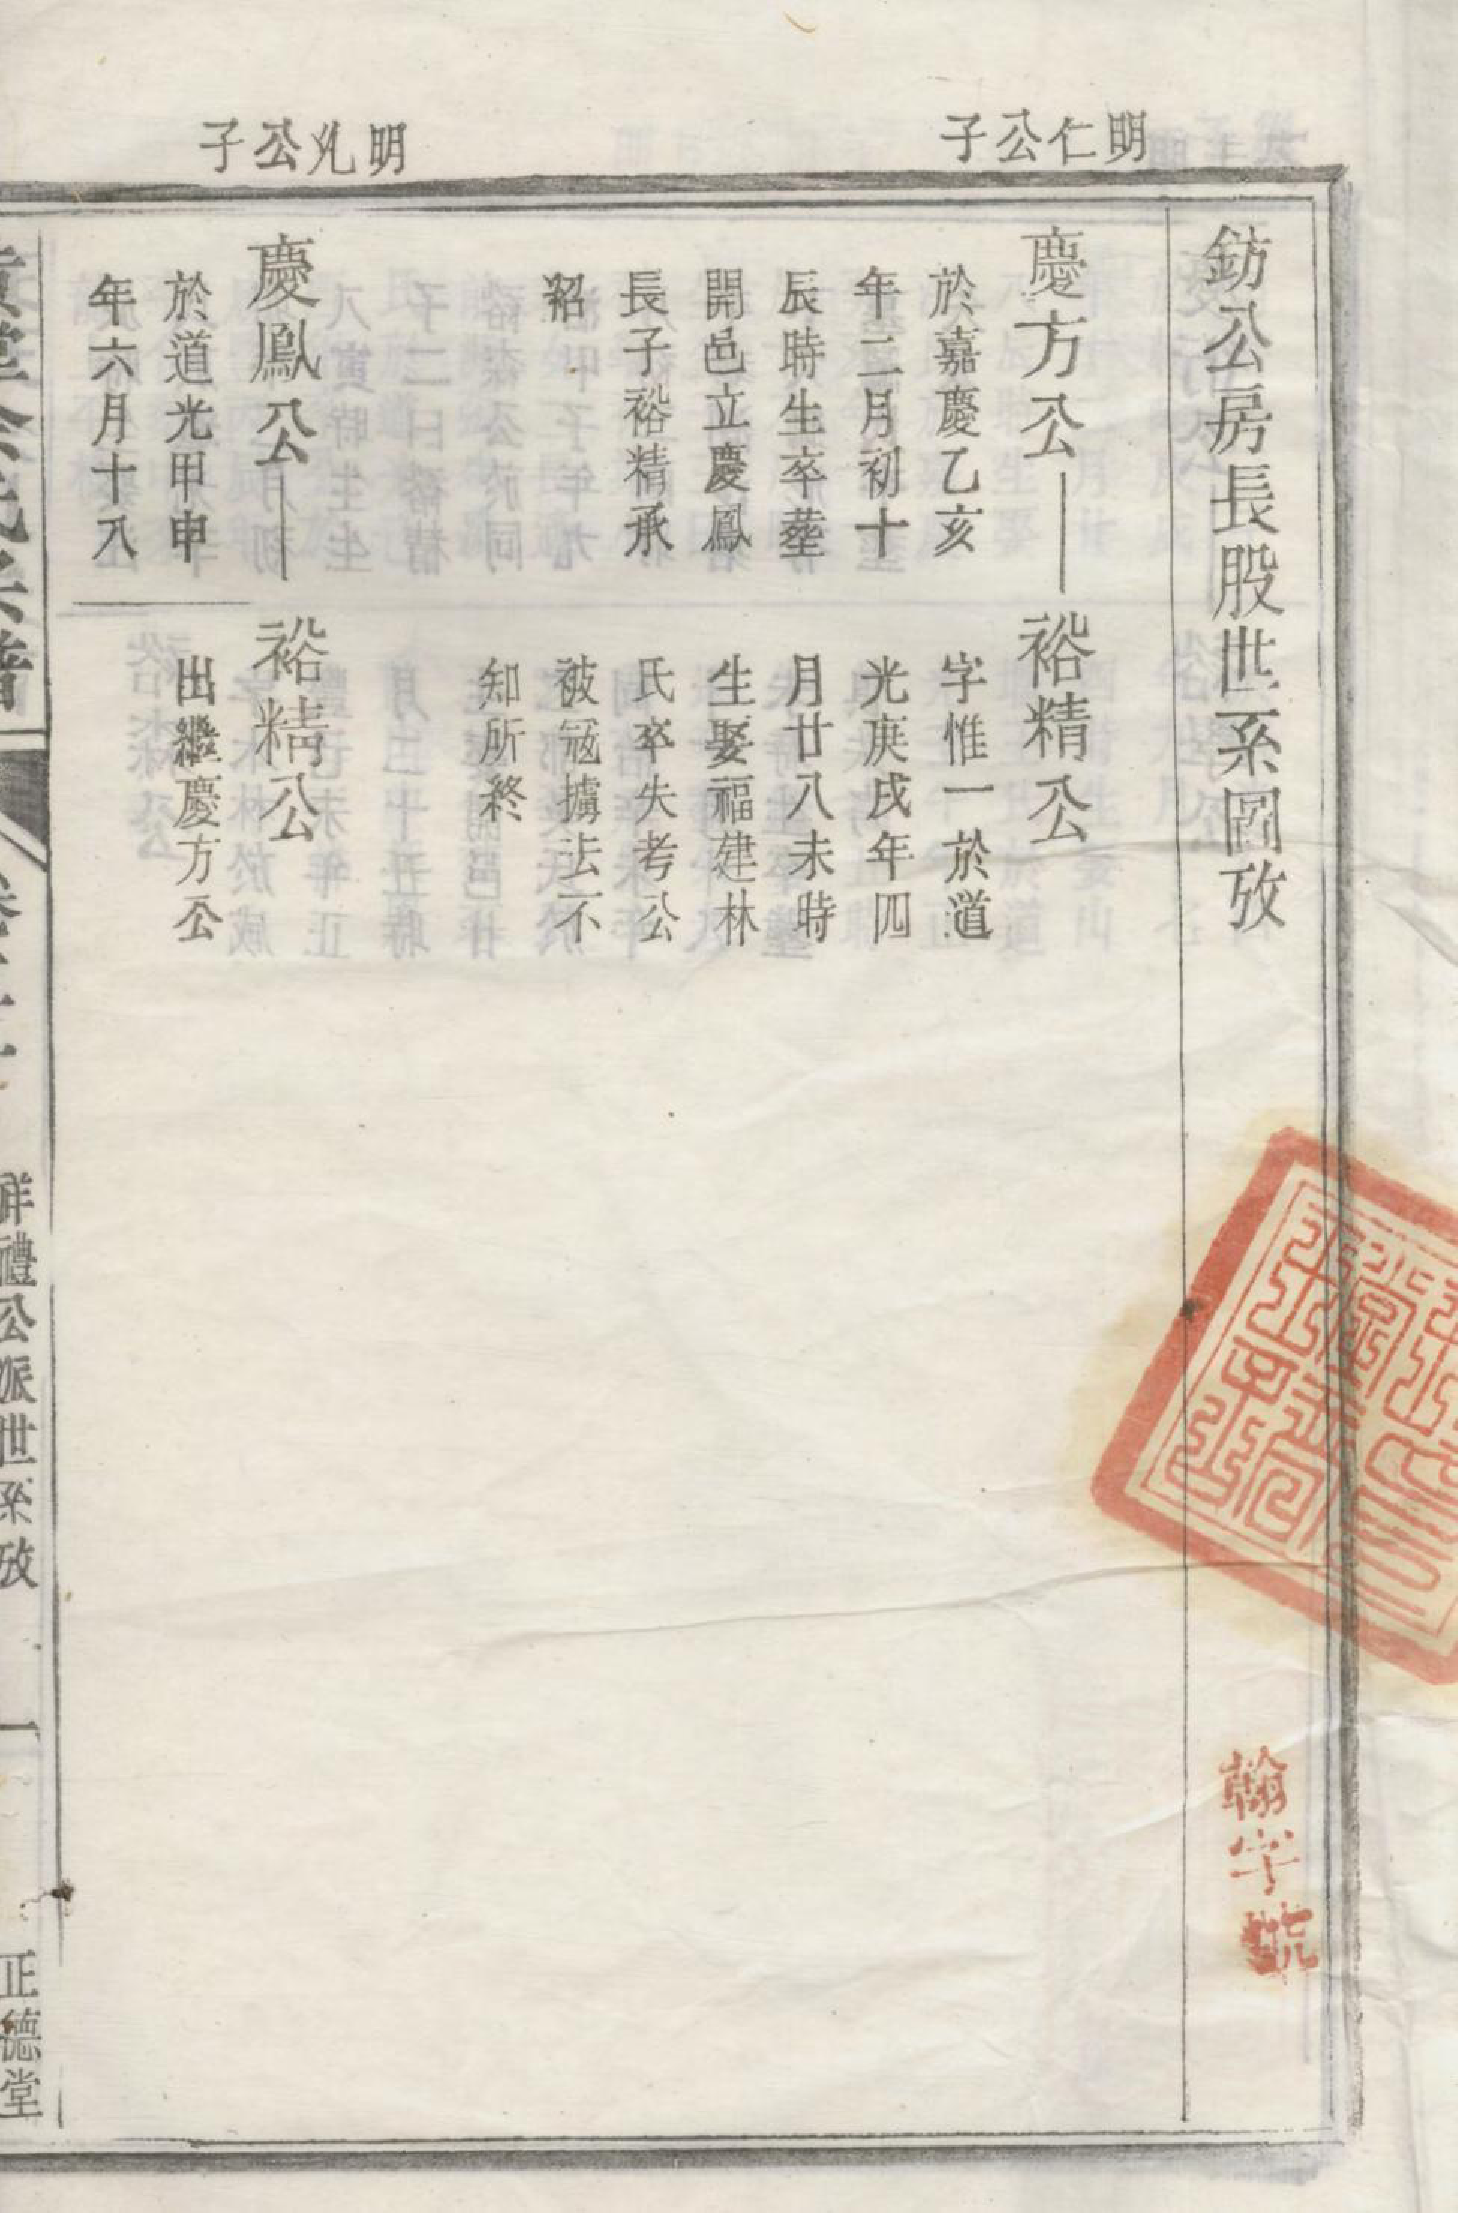 鈁公房長股世系圖攷
明仁公子
慶方公
於嘉慶乙亥
年二月初十
辰時生卒塟
開邑立慶鳳
長子裕精承
裕精公
字惟一於道
光庚戌年四
月廿八未時
生娶福建林
氏卒失考公
被冦擄去不
知所終
明公子
慶鳳公
於道光甲申
年六月十八
裕精公
出繼慶方公
祥禮公派世系攷
一
正德堂
翰字號